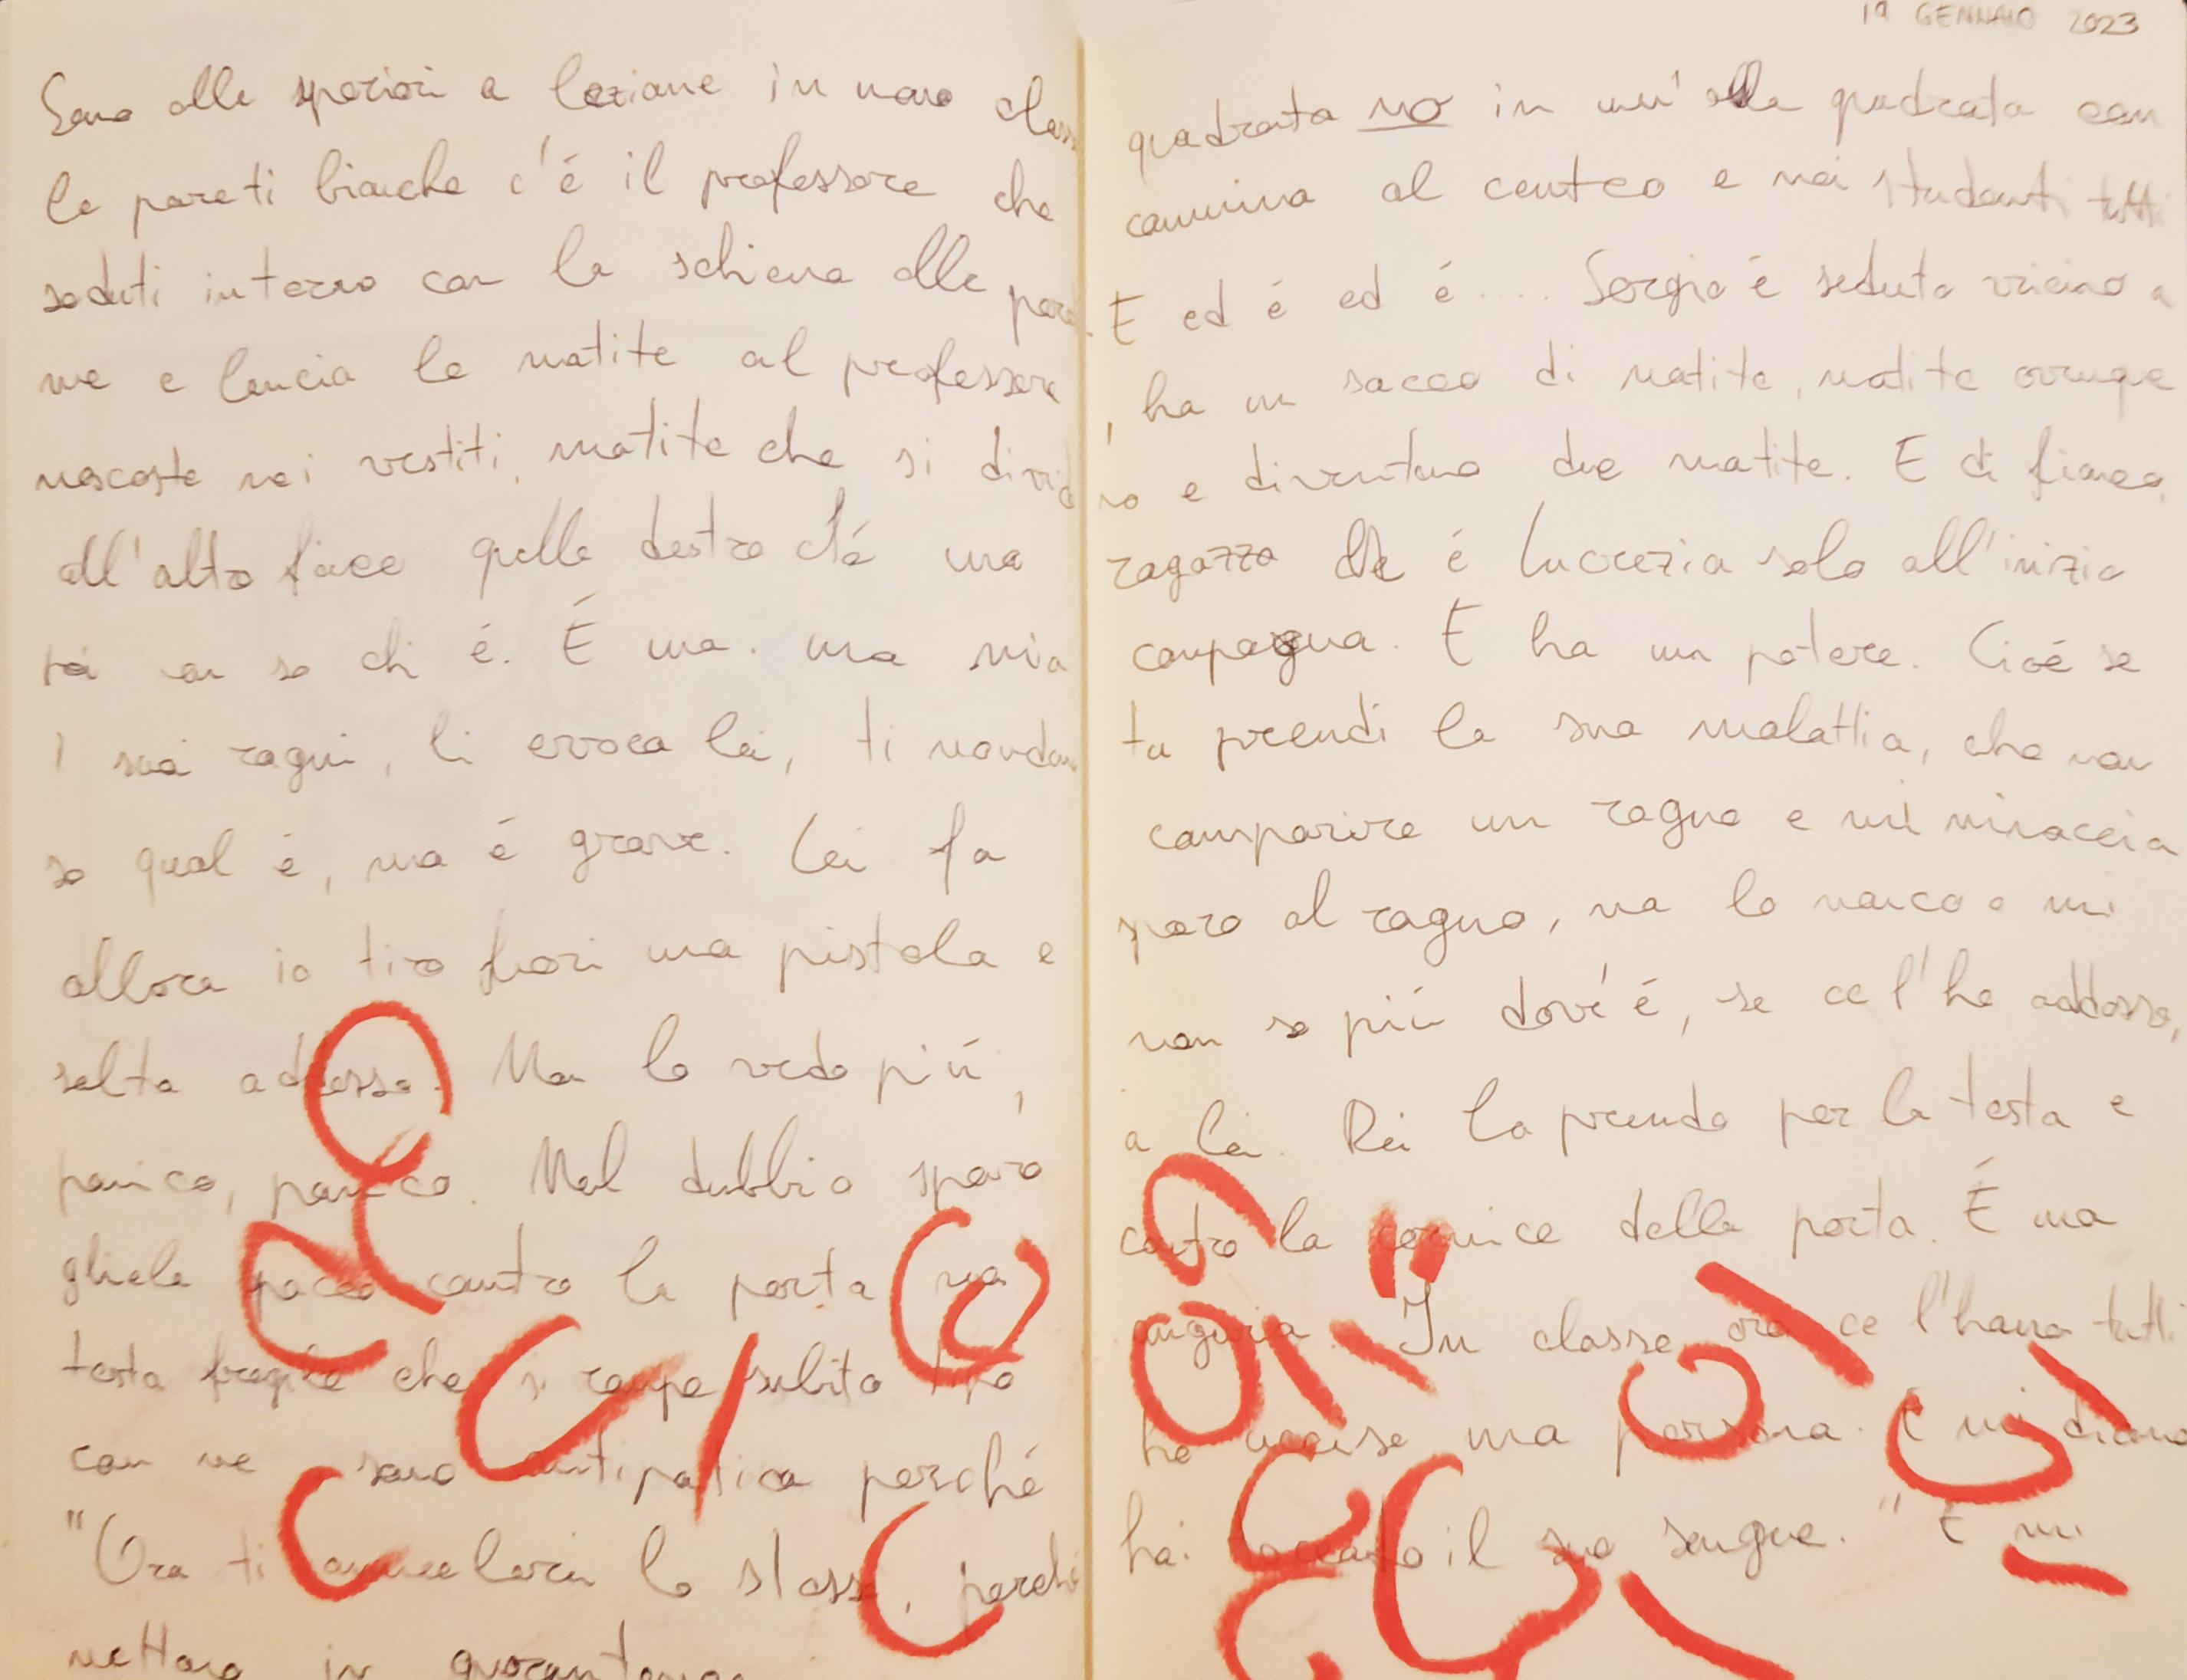 19 GENNAIO 2023
Sono alle speriori a lezione in una classe quadrata no in un'alla quadrata con
le pareti bianche c'é il professore che cammina al centro e noi studenti tutti
seduti intorno con la schiena alle pareti. E ed é ed é .... Sergio é seduto vicino a
me e lancia le matite al professore, ha un sacco di matite, matite ovunque
nascoste nei vestiti, matite che si dividono e diventano due matite. E di fianco,
all'altro fianco quello destro c'é una ragazza che é Lucrezia solo all'inizio
poi non so chi é. É una. una mia compagna. E ha un potere. Cioé se
I suoi ragni, li evoca lei, ti mordono tu prendi la sua malattia, che non
so qual é, ma é grave. Lei fa comparire un ragno e mi minaccia
allora io tiro fuori una pistola e sparo al ragno, ma lo manco e mi
salta addosso. Non lo vedo piú, non so piú dov'é, se ce l'ho addosso,
panico, panico. Nel dubbio sparo a lei. Poi la prendo per la testa e
gliela spacco contro la porta contro la cornice della porta. É una
testa fragile che si rompe subito tipo anguria. In classe ora ce l'hano tutti
con me sono antipatica perché ho ucciso una persona. E mi dicono
"Ora ti ammalerai lo stesso, perché hai toccato il suo sangue." E mi
mettono in quarantena